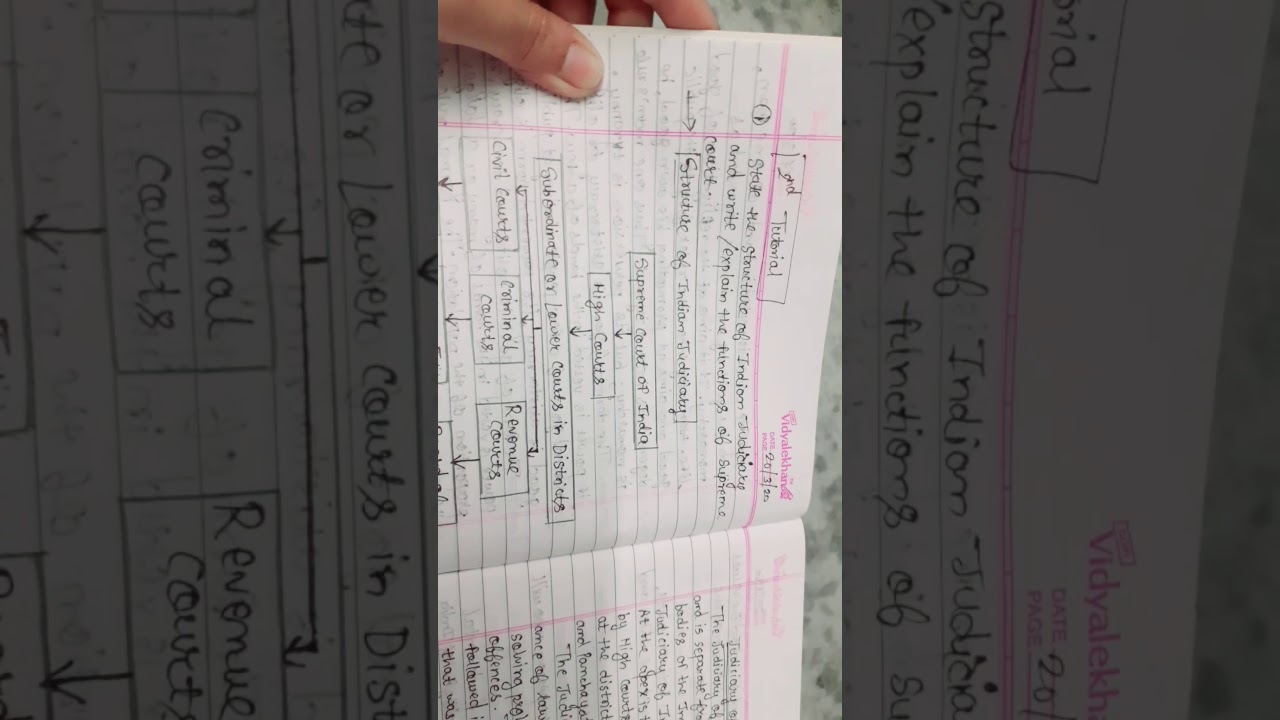 Vidyalekhan
DATE 20/3/20
PAGE
2nd Tutorial
① State the structure of Indian Judiciary
and write/explain the functions of Supreme
Court.
→ Structure of Indian Judiciary
Supreme Court of India
High Courts
Subordinate or Lower Courts in Districts
Civil Courts
Criminal
Courts
Revenue
Courts
Judiciary
The Judiciary of
and is separate
bodies of the
Judiciary of
At the apex is
by High Cour
at the district
and Panchaya
The Judi
ance of law
solving
offences.
followed
that was